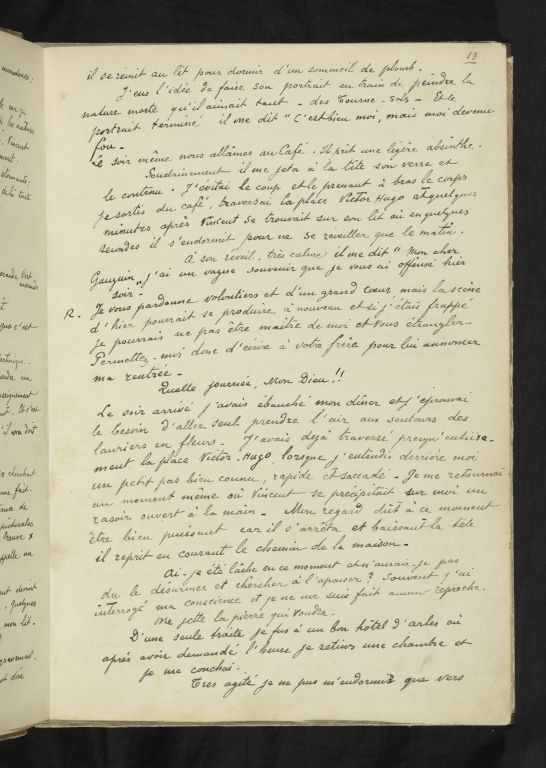 13
il se remit au lit pour dormir d'un sommeil de plomb.
J'eus l'idée de faire son portrait en train de peindre la
nature morte qu'il aimait tant - des Tourne-sols - Et le
portrait terminé il me dit "C'est bien moi, mais moi devenu
fou -
Le soir même nous allâmes au Café. Il prit une légère absinthe.
Soudainement il me jeta à la tête son verre et
le contenu. J'évitai le coup et le prenant à bras le corps
je sortis du café, traversai la place Victor Hugo et quelques
minutes après Vincent se trouvait sur son lit où en quelques
secondes il s'endormit pour ne se réveiller que le matin.
A son réveil, très calme il me dit "Mon cher
Gauguin, j'ai un vague souvenir que je vous ai offensé hier
soir -
R. Je vous pardonne volontiers et d'un grand cœur mais la scène
d'hier pourrait se produire à nouveau et si j'étais frappé
je pourrais ne pas être maître de moi et vous étrangler -
Permettez-moi donc d'écrire à votre frère pour lui annoncer
ma rentrée -
Quelle journée, Mon Dieu!!
Le soir arrivé j'avais ébauché mon dîner et j'éprouvai
le besoin d'aller seul prendre l'air aux senteurs des
lauriers en fleurs - J'avais déjà traversé presqu'entière-
ment la place Victor-Hugo, lorsque j'entendis derrière moi
un petit pas bien connu, rapide et saccadé - Je me retournai
au moment même où Vincent se précipitait sur moi un
rasoir ouvert à la main - Mon regard dût à ce moment
être bien puissant car il s'arrêta et baissant la tête
il reprit en courant le chemin de la maison -
Ai-je été lâche en ce moment et n'aurais-je pas
du le désarmer et chercher à l'apaiser? Souvent j'ai
interrogé ma conscience et je ne me suis fait aucun reproche.
Me jette la pierre qui voudra.
D'une seule traite je fus à un bon hôtel d'arles où
après avoir demandé l'heure je retins une chambre et
je me couchai.
Très agité je ne pus m'endormir que vers